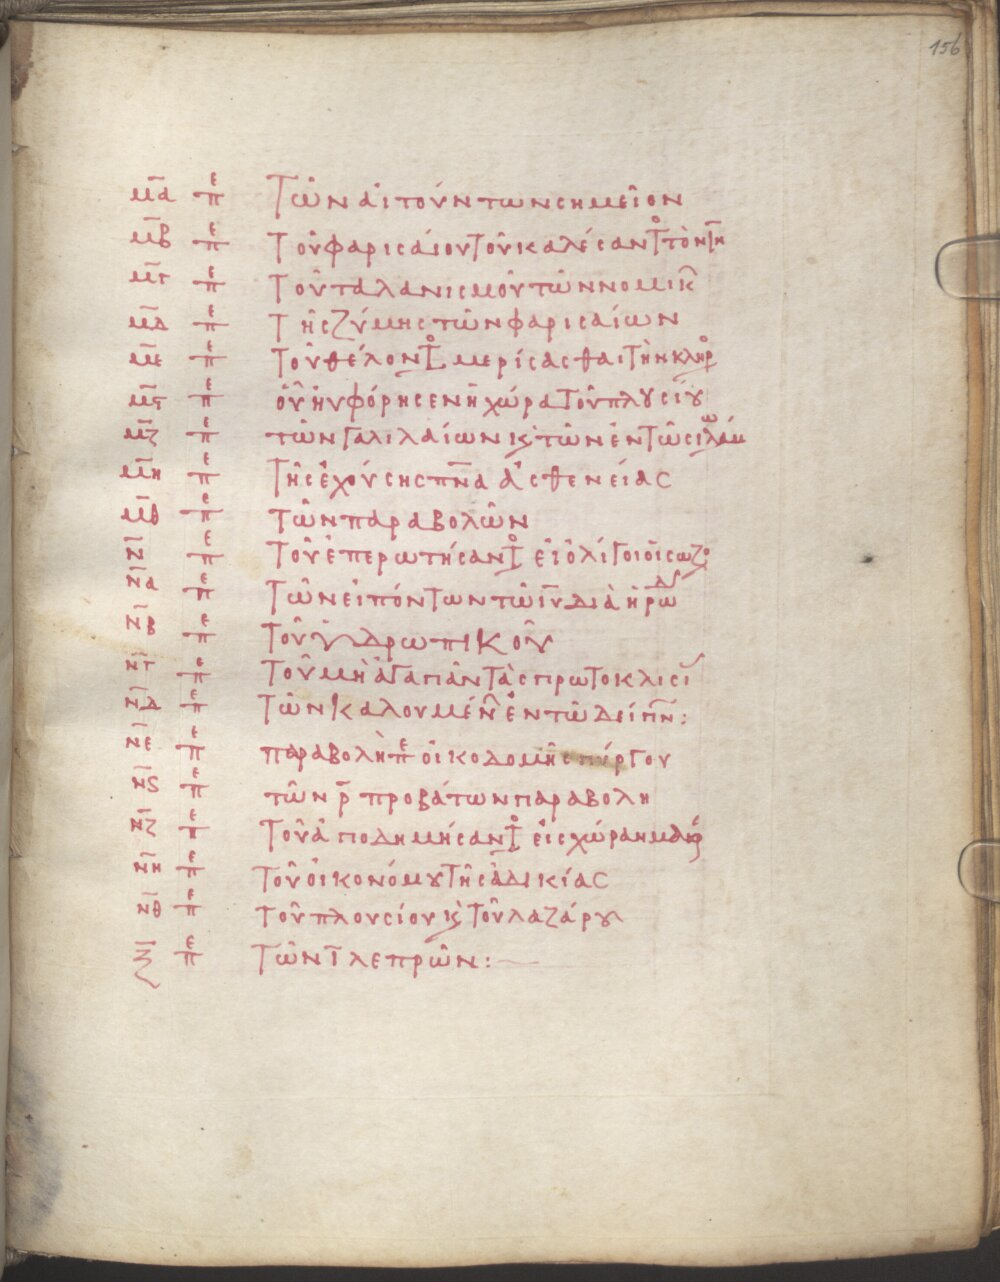 156
μα πε Τῶν αἰτούντων σημεῖον
μβ πε Τοῦ φαρισαίου τοῦ καλέσαντο τὸν ιν
μγ πε Τοῦ ταλανισμοῦ τῶν νομικ
μδ πε Τῆς ζύμης τῶν φαρισαίων
με πε Τοῦ θέλοντο μερίσασθαι τὴν κληρο
μϛ πε οὗ ηὐφόρησεν ἡ χώρα τοῦ πλουσίου
μζ πε τῶν γαλιλαίων κ τῶν ἐν τῶ σιλωάμ
μη πε Τῆς ἐχούσης πνα ἀσθενείας
μθ πε Τῶν παραβολῶν
ν πε Τοῦ ἐπερωτήσαντο εἰ ὀλίγοι οἱ σωζο
να πε Τῶν εἰπόντων τῶ ιυ διὰ ηρωδ
νβ πε Τοῦ ὑδρωπικοῦ
νγ πε Τοῦ μὴ ἀγαπᾶν τὰς πρωτοκλισί
νδ πε Τῶν καλουμέν ἐν τῶ δείπν:
νε πε παραβολὴ πε οἰκοδομῆς πύργου
νϛ πε τῶν ρ προβάτων παραβολη
νζ πε Τοῦ ἀποδημήσαντο εἰς χώραν μακρ
νη πε Τοῦ οἰκονόμου τῆς ἀδικίας
νθ πε Τοῦ πλουσίου κ τοῦ λαζάρου
ξ πε Τῶν ι λεπρῶν: